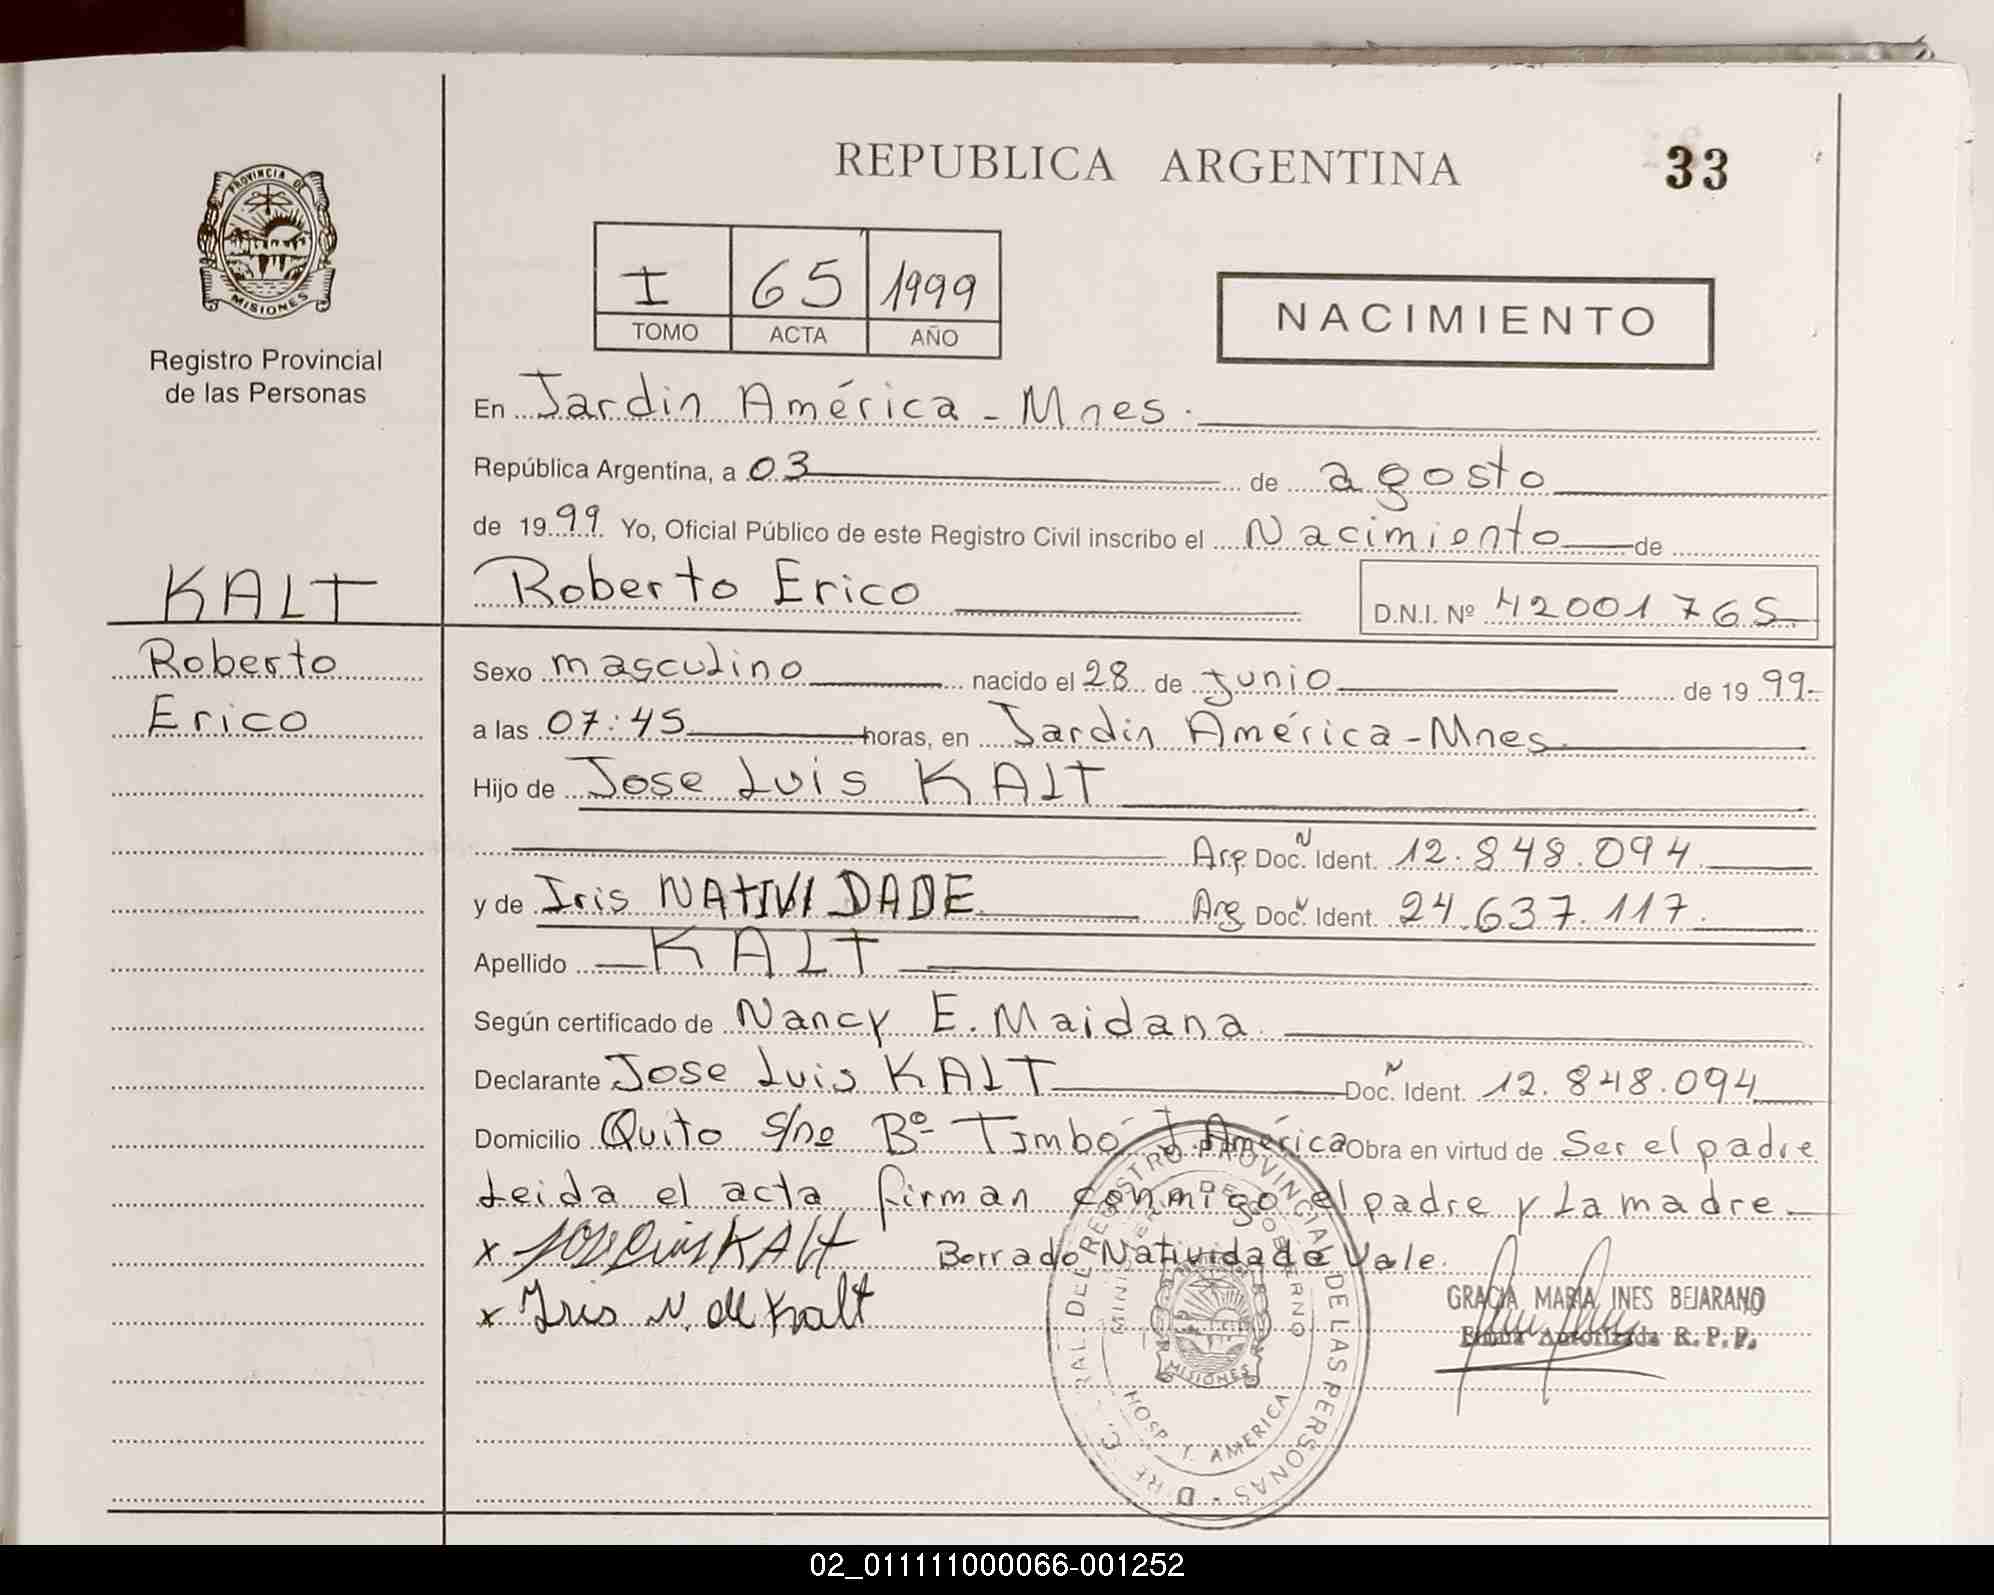 REPUBLICA ARGENTINA
33
PROVINCIA DE
MISIONES
Registro Provincial
de las Personas
I 65 1999
TOMO ACTA AÑO
NACIMIENTO
En Jardin América - Mnes.
República Argentina, a 03 de agosto
de 1999 Yo, Oficial Público de este Registro Civil inscribo el Nacimiento de
KALT
Roberto Erico
D.N.I. Nº 42001765
Roberto
Erico
Sexo masculino nacido el 28 de Junio de 1999-
a las 07:45 horas, en Jardin América - Mnes.
Hijo de Jose Luis KALT
Arg Doc. N Ident. 12.848.094
y de Iris NATIVIDADE Arg Doc. N Ident. 24.637.117.
Apellido KALT
Según certificado de Nancy E. Maidana
Declarante Jose Luis KALT Doc. N Ident. 12.848.094
Domicilio Quito s/nº Bº Timbó J. América Obra en virtud de Ser el padre
Leida el acta firman conmigo el padre y La madre
x Jose Luis KALT Borrado Natividade Vale.
x Iris N. de Kalt
GRACIA MARIA INES BEJARANO
Firma Autorizada R.P.P.
REGISTRO PROVINCIAL DE LAS PERSONAS
MINISTERIO DE GOBIERNO
MISIONES
HOSP. J. AMERICA
02_011111000066-001252